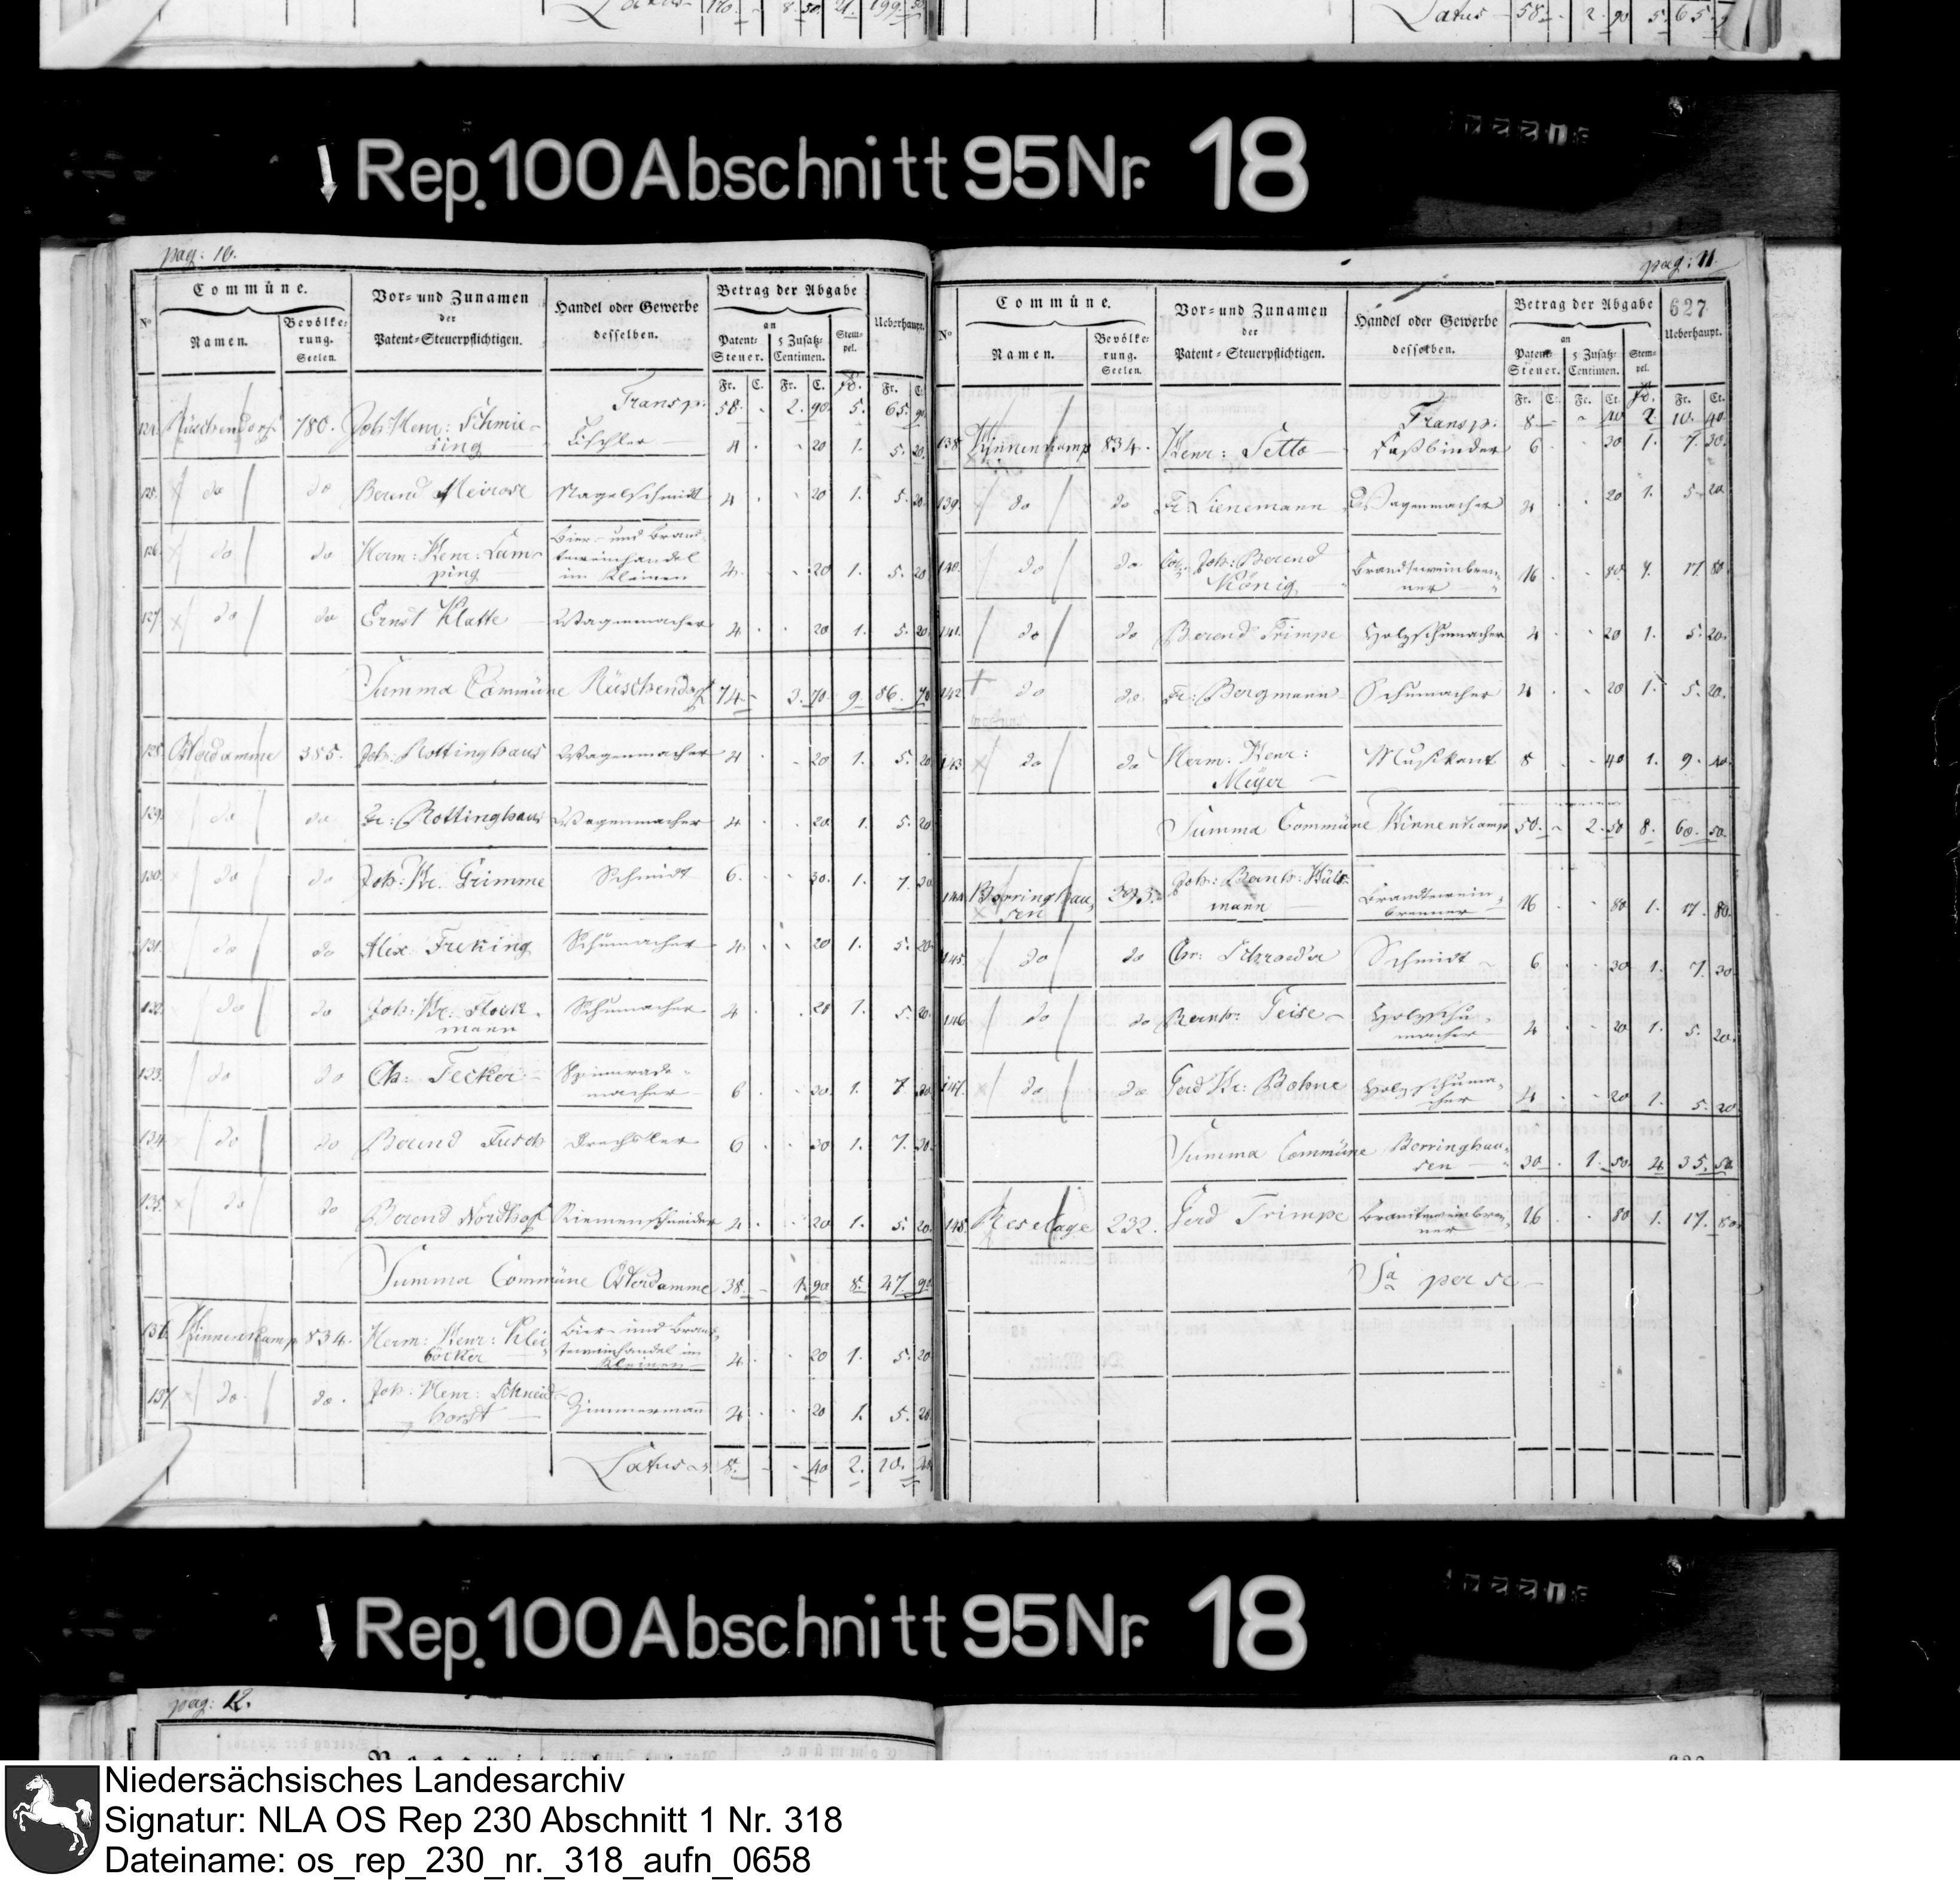 Latus 170. - 8. 50 21. 199. 50
Latus 58. - 2. 90 5. 65. 9
Rep. 100 Abschnitt 95 Nr. 18
pag: 10.
Commüne.
Vor- und Zunamen
der
Patent-Steuerpflichtigen.
Handel oder Gewerbe
desselben.
Betrag der Abgabe
Ueberhaupt.
No
Namen.
Bevölke-
rung.
Seelen.
an
Patent-
Steuer.
5 Zusatz-
Centimen.
Stem-
pel.
Fr. C. Fr. C. Fr. Fr. C.
Transp. 58. - 2. 90. 5. 65. 90
124. Rüschendorf 780. Joh: Henr: Schmie-
sing Tischler 4 . - 20 1. 5. 20.
125. do do Berend Meirose Nagelschmidt 4 . - 20 1. 5. 20.
126. do do Herm: Henr: Lam-
ping
Bier- und Brand-
teweinhandel
im Kleinen 4. - 20 1. 5. 20
127. do do Ernst Klatte Wagenmacher 4 . . 20 1. 5. 20.
Summa Commüne Rüschendorf 74 - 3. 70. 9. 86. 70
128. Osterdamme 385. Joh. Rottinghaus Wagenmacher 4 . - 20 1. 5. 20
129. do do Fr: Rottinghaus Wagenmacher 4 . . 20. 1. 5. 20
130. do do Joh: Hr. Grimme Schmidt 6. . 30. 1. 7. 30
131. do do Alex. Freking Schumacher 4. . 20 1. 5. 20.
132. do do Joh: Hr: Flock-
mann Schumacher 4. . 20 1. 5. 20.
133. do do Ch: Fecker Spinnrade-
macher 6 . - 30. 1. 7. 30
134. do do Berend Fusch Drechsler 6 . - 30 1. 7. 30.
135. do do Berend Nordhof Riemenschneider 4 . - 20 1. 5. 20.
Summa Commüne Osterdamme 38. - 1. 90 8. 47. 90
136. Hinnenkamp 834. Herm: Henr: Klei-
böcker
Bier- und Brand-
teweinhandel im
Kleinen 4 . 20 1. 5. 20
137. do. do. Joh: Henr: Schneid-
horst Zimmermann 4 . - 20 1. 5. 20.
Latus 8. - - 40 2. 10. 40
pag: 11.
627
Commüne.
Vor- und Zunamen
der
Patent-Steuerpflichtigen.
Handel oder Gewerbe
desselben.
Betrag der Abgabe
Ueberhaupt.
No
Namen.
Bevölke-
rung.
Seelen.
an
Patent-
Steuer.
5 Zusatz-
Centimen.
Stem-
pel.
Fr. C. Fr. Ct. Fr. Fr. Ct.
Transp. 8. - 40 2. 10. 40
138. Hinnenkamp 834. Henr: Sette Faßbinder 6 . 30 1. 7. 30.
139. do do Fr: Lienemann Wagenmacher 4 . 20 1. 5. 20
140. do do Joh: Berend
König
Brandteweinbren-
ner 16 . - 80. 1. 17. 80.
141. do do Berend Trimpe Holzschumacher 4 . - 20 1. 5. 20.
142 do do. Fr: Bergmann Schumacher 4 . - 20 1. 5. 20.
143 do do Herm: Henr:
Meÿer Musikant 8 - 40 1. 9. 40.
Summa Commüne Hinnenkamp 50. - 2. 50 8. 60. 50.
144. Borringhau-
sen 293. Joh: Bernh: Hüls-
mann
Brandtewein-
brenner 16 - 80 1. 17. 80.
145. do do Chr: Schroeder Schmidt 6 . 30 1. 7. 30
146 do do Bernh: Geise Holzschu-
macher 4 . - 20 1. 5. 20.
147. do do Gerd Hr: Bohne Holzschuma-
cher 4 . - 20 1. 5. 20
Summa Commüne Borringhau-
sen 30. . 1. 50. 4. 35. 50
148. Reselage 232. Gerd Trimpe Brandteweinbren-
ner 16 . - 80 1. 17. 80.
Sa per se
Rep. 100 Abschnitt 95 Nr. 18
pag: 12.
Niedersächsisches Landesarchiv
Signatur: NLA OS Rep 230 Abschnitt 1 Nr. 318
Dateiname: os_rep_230_nr._318_aufn_0658